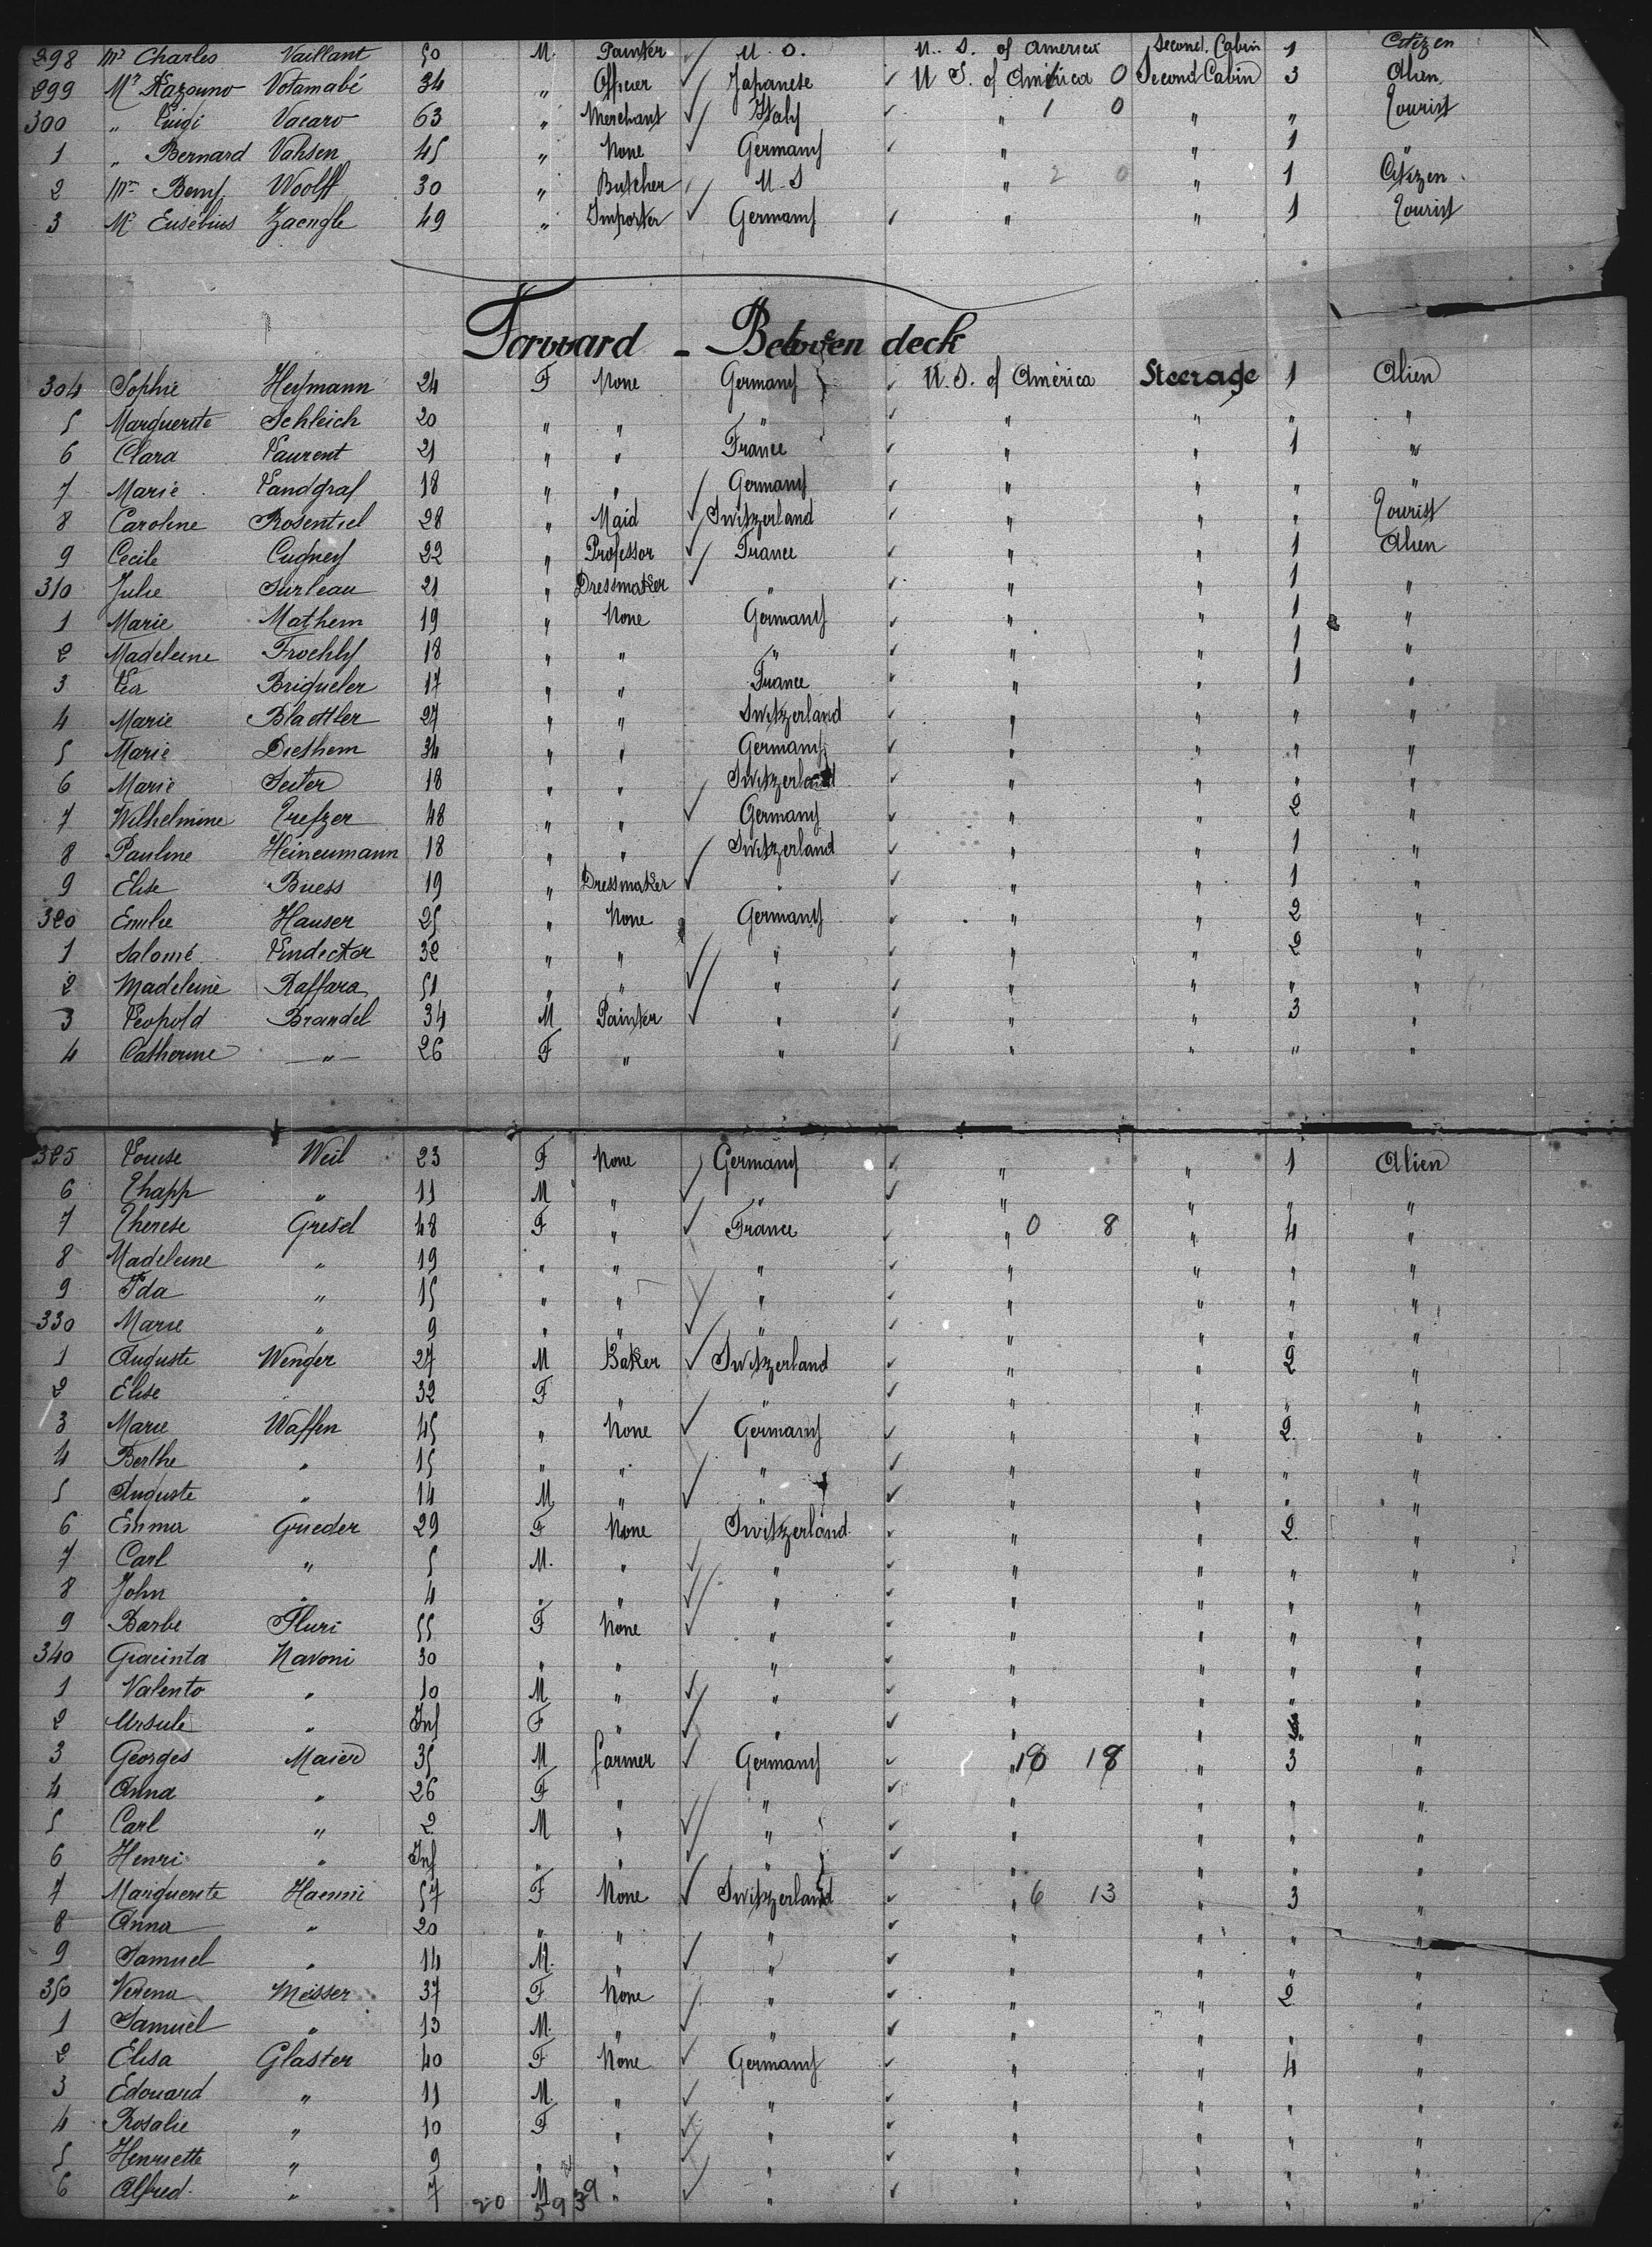 298 Mr Charles Vaillant 50 M. Painter U. S. U. S. of America Second. Cabin 1 Citizen
299 Mr Kazouno Votamabé 34 " Officer Japanese U S. of America 0 Second Cabin 3 Alien
300 " Luigi Vacaro 63 " Merchant Italy " 1 0 " " Tourist
1 " Bernard Vahsen 45 " None Germany " " 1 "
2 Mr Benj Woolff 30 " Butcher U. S " 2 0 " 1 Citizen
3 Mr Eusébius Zaengle 49 " Importer Germany " " 1 Tourist
Forward - Between deck
304 Sophie Heymann 24 F None Germany U. S. of América Steerage 1 Alien
5 Marguerite Schleich 20 " " " " " " "
6 Clara Laurent 21 " " France " " 1 "
7 Marie Landgraf 18 " " Germany " " " "
8 Caroline Rosentiel 28 " Maid Switzerland " " " Tourist
9 Cecile Cugney 22 " Professor France " " 1 Alien
310 Julie Surleau 21 " Dressmaker " " " 1 "
1 Marie Mathern 19 " None Germany " " 1 "
2 Madeleine Froehly 18 " " " " " 1 "
3 Léa Briqueler 17 " " France " " 1 "
4 Marie Blaettler 27 " " Switzerland " " " "
5 Marie Diethem 34 " " Germany " " " "
6 Marie Seiter 18 " " Switzerland " " " "
7 Wilhelmine Trefzer 48 " " Germany " " 2 "
8 Pauline Heineumann 18 " " Switzerland " " 1 "
9 Elise Buess 19 " Dressmaker " " " 1 "
320 Emilie Hauser 25 " None Germany " " 2 "
1 Salomé Lindecker 32 " " " " " 2 "
2 Madeleine Raffara 51 " " " " " " "
3 Léopold Brandel 34 M Painter " " " 3 "
4 Catherine " 26 F " " " " " "
325 Louise Weil 23 F None Germany " " 1 Alien
6 Thapp " 11 M " " " " " "
7 Therese Gresel 48 F " France " 0 8 " 4 "
8 Madeleine " 19 " " " " " " "
9 Ida " 15 " " " " " " "
330 Marie " 9 " " " " " " "
1 Auguste Wenger 27 M Baker Switzerland " " 2 "
2 Elise 32 F " " " " " "
3 Marie Waffen 45 " None Germany " " 2 "
4 Berthe " 15 " " " " " " "
5 Auguste " 14 M " " " " " "
6 Emma Grieder 29 F None Switzerland " " 2 "
7 Carl " 5 M. " " " " " "
8 John " 4 " " " " " " "
9 Barbe Fluri 55 F None " " " " "
340 Giacinta Navoni 30 " " " " " " "
1 Valento " 10 M " " " " " "
2 Ursule " Inf F " " " " 3 "
3 Georges Maier 35 M farmer Germany " 10 18 " 3 "
4 Anna " 26 F " " " " " "
5 Carl " 2 M " " " " " "
6 Henri " Inf " " " " " " "
7 Marguerite Haenni 57 F None Switzerland " 6 13 " 3 "
8 Anna " 20 " " " " " " "
9 Samuel " 14 M. " " " " " "
350 Verena Messer 37 F None " " " 2 "
1 Samuel " 13 M. " " " " " "
2 Elisa Glaster 40 F None Germany " " 4 "
3 Edouard " 11 M. " " " " " "
4 Rosalie " 10 F " " " " " "
5 Henriette " 9 " " " " " " "
6 Alfred. " 7 M " " " " " "
20 59 39